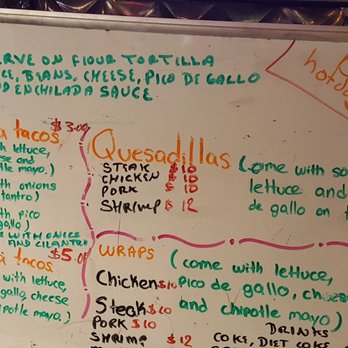 ERVE ON FLOUR TORTILLA
CE, BEANS, CHEESE, PICO DE GALLO
ENCHILADA SAUCE
hotdo
tacos
$3.00
th lettuce,
se and
tle mayo.)
th onions
lantro)
th pico
gallo)
WITH ONIOS
AND CILANTRO
tacos
$5.00
ith lettuce,
gallo, cheese
potle mayo.)
Quesadillas
(come with so
lettuce and
de gallo on t
STEAK $10
CHICKEN $10
PORK $10
SHRIMP $12
WRAPS
(come with lettuce,
pico de gallo, chees
and chipotle mayo)
Chicken $10
Steak $10
PORK $10
SHRIMP $12
DRINKS
COKE, DIET COKE